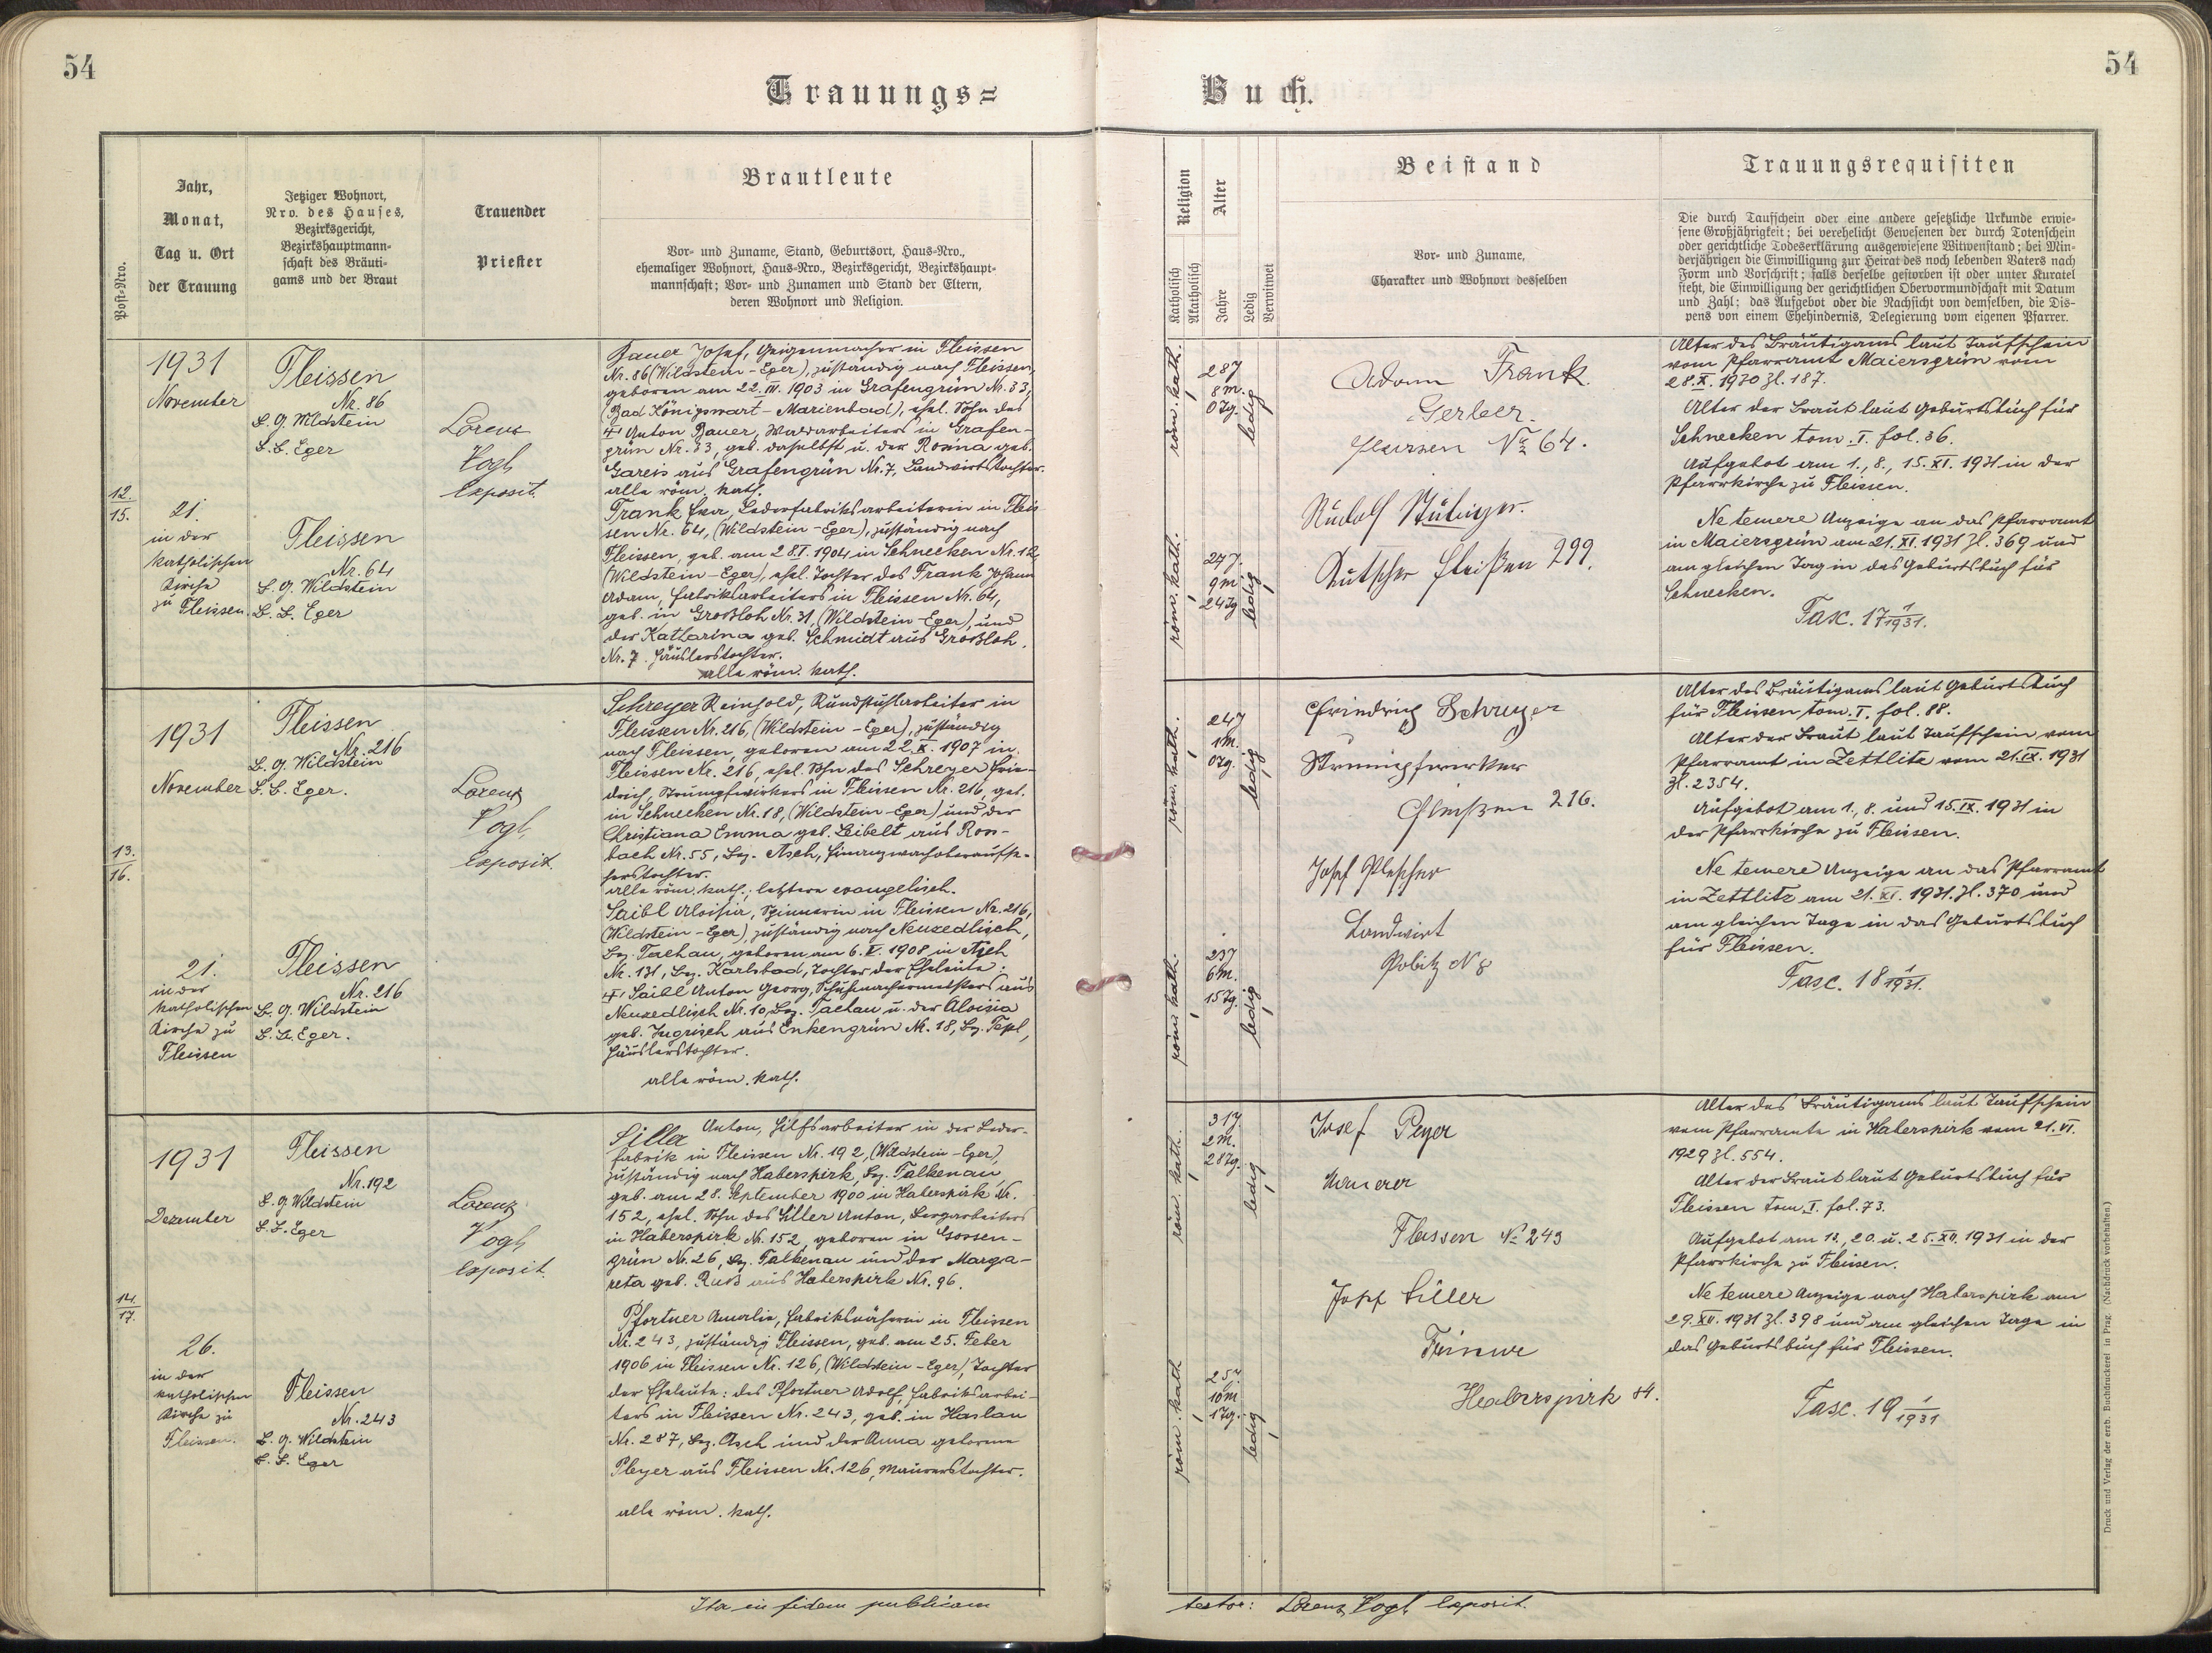 54
54
Trauungs=
Buch.
Post-Nro.
Jahr,
Monat,
Tag u. Ort
der Trauung
Jetziger Wohnort,
Nro. des Hauses,
Bezirksgericht,
Bezirkshauptmann-
schaft des Bräuti-
gams und der Braut
Trauender
Priester
Brautleute
Vor- und Zuname, Stand, Geburtsort, Haus-Nro.,
ehemaliger Wohnort, Haus-Nro., Bezirksgericht, Bezirkshaupt-
mannschaft; Vor- und Zunamen und Stand der Eltern,
deren Wohnort und Religion.
Religion
Katholisch
Akatholisch
Alter
Jahre
Ledig
Verwitwet
Beistand
Vor- und Zuname,
Charakter und Wohnort desselben
Trauungsrequisiten
Die durch Taufschein oder eine andere gesetzliche Urkunde erwie-
sene Großjährigkeit; bei verehelicht Gewesenen der durch Totenschein
oder gerichtliche Todeserklärung ausgewiesene Witwenstand; bei Min-
derjährigen die Einwilligung zur Heirat des noch lebenden Vaters nach
Form und Vorschrift; falls derselbe gestorben ist oder unter Kuratel
steht, die Einwilligung der gerichtlichen Obervormundschaft mit Datum
und Zahl; das Aufgebot oder die Nachsicht von demselben, die Dis-
pens von einem Ehehindernis, Delegierung vom eigenen Pfarrer.
12.
15.
1931
November
21.
in der
katholischen
Kirche
zu Fleissen.
Fleissen
Nr. 86
B. G. Wildstein
B. B. Eger
Fleissen
Nr. 64
B. G. Wildstein
B. B. Eger
Lorenz
Vogl,
Exposit.
Bauer Josef, Geigenmacher in Fleissen
Nr. 86 (Wildstein - Eger), zuständig nach Fleissen,
geboren am 22. III. 1903 in Grafengrün Nr. 33,
(Bad Königswart - Marienbad), ehel. Sohn des
† Anton Bauer, Waldarbeiters in Grafen-
grün Nr. 33, geb. daselbst u. der Rosina geb.
Gareis aus Grafengrün Nr. 7, Landwirtstochter.
alle röm. kath.
Frank Eva, Lederfabriksarbeiterin in Fleis
sen Nr. 64, (Wildstein - Eger), zuständig nach
Fleissen, geb. am 28. I. 1904 in Schnecken Nr. 12
(Wildstein - Eger), ehel. Tochter des Frank Johann
Adam, Fabriksarbeiters in Fleissen Nr. 64,
geb. in Grossloh Nr. 31, (Wildstein - Eger), und
der Katharina geb. Schmidt aus Grossloh.
Nr. 7. Häuslerstochter.
alle röm. kath.
röm. kath.
28J
8M.
0Tg.
ledig
röm. kath.
27J.
9M
24Tg
ledig
Adam Frank.
Gerber.
Fleissen № 64.
Rudolf
Kutscher Fleißen 299.
Alter des Bräutigams laut Taufschein
vom Pfarramt Maiersgrün vom
28. X. 1930 Zl. 187.
Alter der Braut laut Geburtsbuch für
Schnecken tom. I. fol. 36.
Aufgebot am 1., 8., 15. XI. 1931 in der
Pfarrkirche zu Fleissen.
Ne temere Anzeige an das Pfarramt
in Maiersgrün am 21. XI. 1931 Zl. 369 und
am gleichen Tag in das Geburtsbuch für
Schnecken.
Fasc. 17 1/1931.
13.
16.
1931
November
21.
in der
katholischen
Kirche zu
Fleissen
Fleissen
Nr. 216
B. G. Wildstein
B. B. Eger.
Fleissen
Nr. 216
B. G. Wildstein
B. B. Eger.
Lorenz
Vogl,
Exposit.
Schreyer Reinhold, Rundstuhlarbeiter in
Fleissen Nr. 216, (Wildstein - Eger), zuständig
nach Fleissen, geboren am 22. X. 1907 in
Fleissen Nr. 216, ehel. Sohn des Schreyer Frie-
drich, Strumpfwirkers in Fleissen Nr. 216, geb.
in Schnecken Nr. 18, (Wildstein - Eger) und der
Christiana Emma geb. Leibelt aus Ross-
bach Nr. 55, Bez. Asch, Finanzwachoberaufse-
herstochter.
alle röm. kath.; letztere evangelisch.
Saibl Aloisia, Spinnerin in Fleissen Nr. 216,
(Wildstein - Eger), zuständig nach Neuzedlisch,
Bez. Tachau, geboren am 6. V. 1908 in Aich
Nr. 131, Bez. Karlsbad, Tochter der Eheleute:
† Saibl Anton Georg, Schuhmachermeisters aus
Neuzedlisch Nr. 10, Bez. Tachau u. der Aloisia
geb. Ingrisch aus Enkengrün Nr. 18, Bez. Tepl,
Häuslerstochter.
alle röm. kath.
röm. kath.
24J
1M.
0Tg.
ledig
röm. kath.
23J
6M.
15Tg.
ledig
Friedrich Schreyer
Strumpfwirker
Fleißen 216.
Josef
Landwirt
N 8
Alter des Bräutigams laut Geburtsbuch
für Fleissen tom. I. fol. 88.
Alter der Braut laut Taufschein vom
Pfarramt in Zettlitz vom 21. IX. 1931
Zl. 2354.
Aufgebot am 1., 8. und 15. IX. 1931 in
der Pfarrkirche zu Fleissen.
Ne temere Anzeige an das Pfarramt
in Zettlitz am 21. XI. 1931. Zl. 370 und
am gleichen Tage in das Geburtsbuch
für Fleissen.
Fasc. 18 1/1931.
14.
17.
1931
Dezember
26.
in der
katholischen
Kirche zu
Fleissen.
Fleissen
Nr. 192
B. G. Wildstein
B. B. Eger
Fleissen
Nr. 243
B. G. Wildstein
B. B. Eger
Lorenz
Vogl,
Exposit.
Siller Anton, Hilfsarbeiter in der Leder-
fabrik in Fleissen Nr. 192, (Wildstein - Eger),
zuständig nach Haberspirk, Bez. Falkenau,
geb. am 28. September 1900 in Haberspirk Nr.
152, ehel. Sohn des Siller Anton, Bergarbeiters
in Haberspirk Nr. 152, geboren in Gossen-
grün Nr. 26, Bez. Falkenau und der Marga-
reta geb. Russ aus Haberspirk Nr. 96.
Pfortner Amalie, Fabriksnäherin in Fleissen
Nr. 243, zuständig Fleissen, geb. am 25. Feber
1906 in Fleissen Nr. 126, (Wildstein - Eger), Tochter
der Eheleute: des Pfortner Adolf, Fabriksarbei-
ters in Fleissen Nr. 243, geb. in Haslau
Nr. 287, Bez. Asch und der Anna geborene
Pleyer aus Fleissen Nr. 126, Maurerstochter.
alle röm. kath.
röm. kath.
31J
2M.
28Tg.
ledig
röm. kath
25J.
10M
1Tg.
ledig
Josef Peyer
Maurer
Fleissen № 243
Josef Siller
Haberspirk 84.
Alter des Bräutigams laut Taufschein
vom Pfarramte in Haberspirk vom 21. VI.
1929 Zl. 554.
Alter der Braut laut Geburtsbuch für
Fleissen tom. I. fol. 73.
Aufgebot am 13., 20. u. 25. XII. 1931 in der
Pfarrkirche zu Fleissen.
Ne temere Anzeige nach Haberspirk am
29. XII. 1931 Zl. 398 und am gleichen Tage in
das Geburtsbuch für Fleissen.
Fasc. 19 1/1931
Ita in fidem publicam
testor: Lorenz Vogl, Exposit.
Druck und Verlag der erzb. Buchdruckerei in Prag. (Nachdruck vorbehalten.)